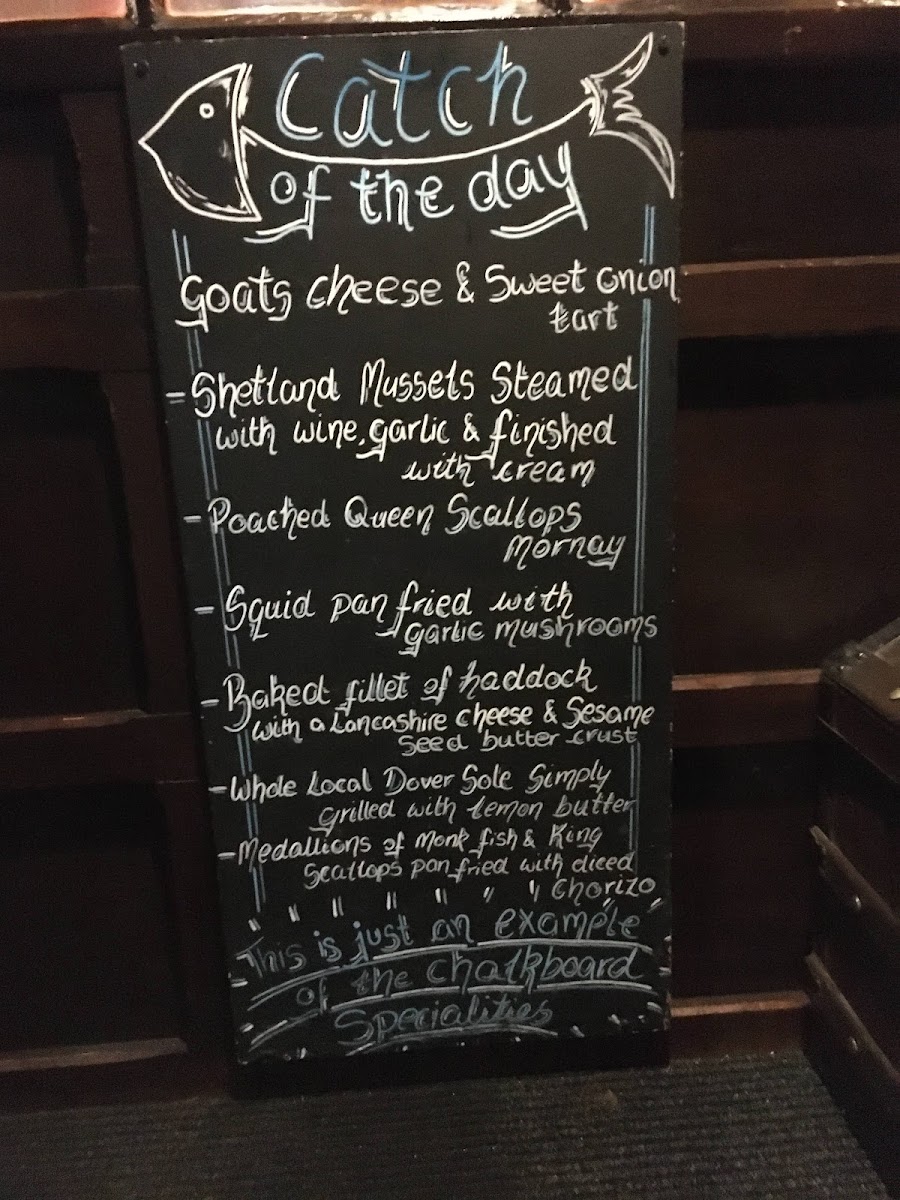 Catch
of the day
Goats cheese & Sweet onion
tart
- Shetland Mussels Steamed
with wine, garlic & finished
with cream
- Poached Queen Scallops
Mornay
- Squid pan fried with
garlic mushrooms
- Baked fillet of haddock
with a Lancashire cheese & Sesame
Seed butter crust
- Whole Local Dover Sole Simply
grilled with lemon butter
- Medallions of Monk fish & King
Scallops pan fried with diced
Chorizo
This is just an example
of the chalkboard
Specialities